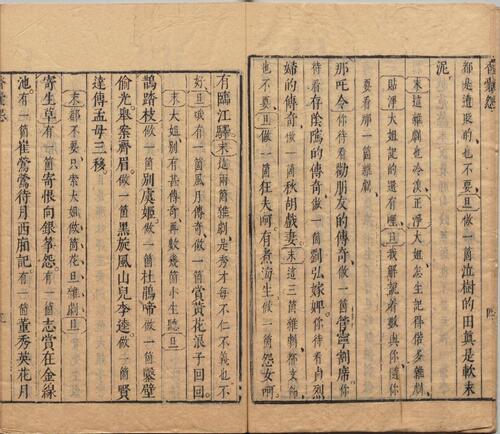 香囊怨 四
都是遭臥的也不要旦做一箇泣樹的田真是軟末
泥
末這雜劇也冷淡正淨大姐怎生記得偌多雜劇
貼淨大姐記的還有哩旦我解說着數與你隨你
要看那一箇雜劇
那吒令你待看勸朋友的傳奇做一箇管寧割席你
待看存陰隲的傳奇做一箇劉弘嫁婢你待看貞烈
婦的傳奇做一箇秋胡戲妻末這三箇雜劇都文飾
也不要旦做一箇狂夫呵有煮海生做一箇怨女呵
有臨江驛末這兩箇雜劇是秀才每不仁不義也不
好旦哦有一箇風月傳奇做一箇賞黃花浪子回回
末大姐別有甚傳奇再數幾箇小生聽旦
鵲踏枝做一箇別虞姬做一箇杜鵑啼做一箇鑿壁
偷光舉案齊眉做一箇黑旋風山兒李逵做一箇賢
達傳孟母三移
末都不要只索大姐做箇花旦雜劇旦
寄生草有一箇寄恨向銀箏怨有一箇志賞在金線
池有一箇崔鶯鶯待月西廂記有一箇董秀英花月